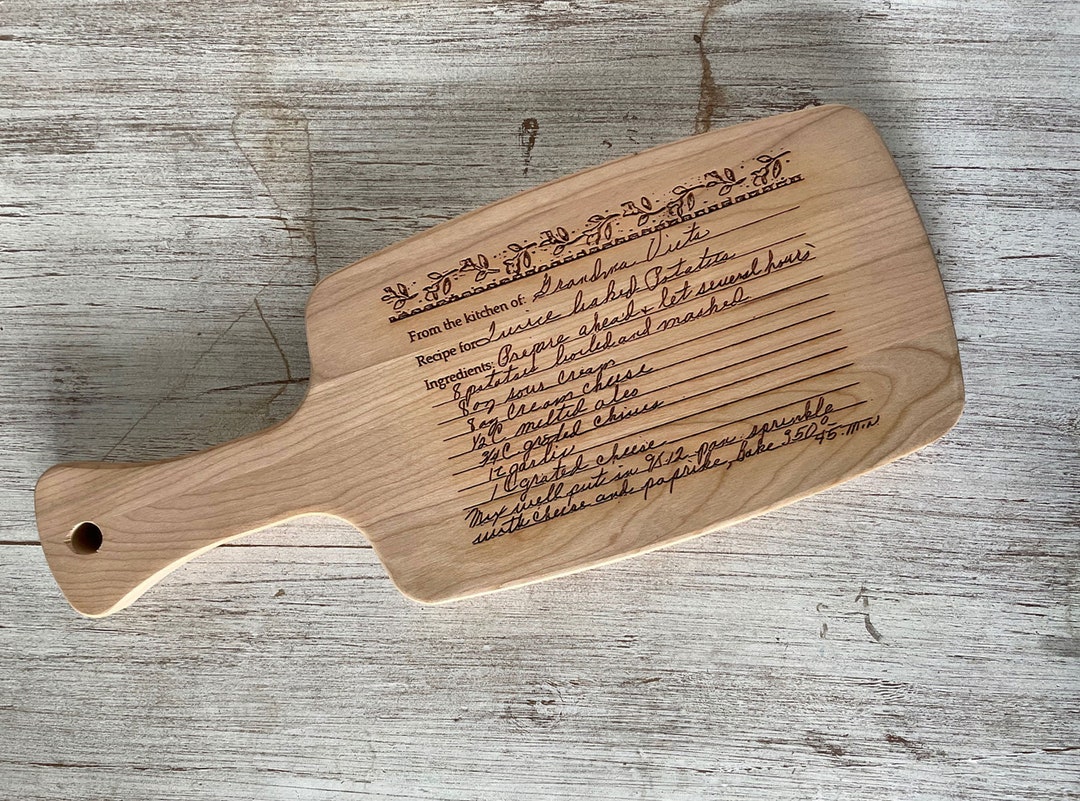 From the kitchen of: Grandma Viets
Recipe for Twice baked Potatoes
Ingredients: Prepare ahead & let several hours
8 potatoes boiled and mashed
8 oz sour cream
8 oz cream cheese
1/2 C melted oleo
3/4 C grated chives
1 t garlic
1 C grated cheese
Mix well put in 9X12 pan sprinkle
with cheese and paprika, Bake 350°
45 min